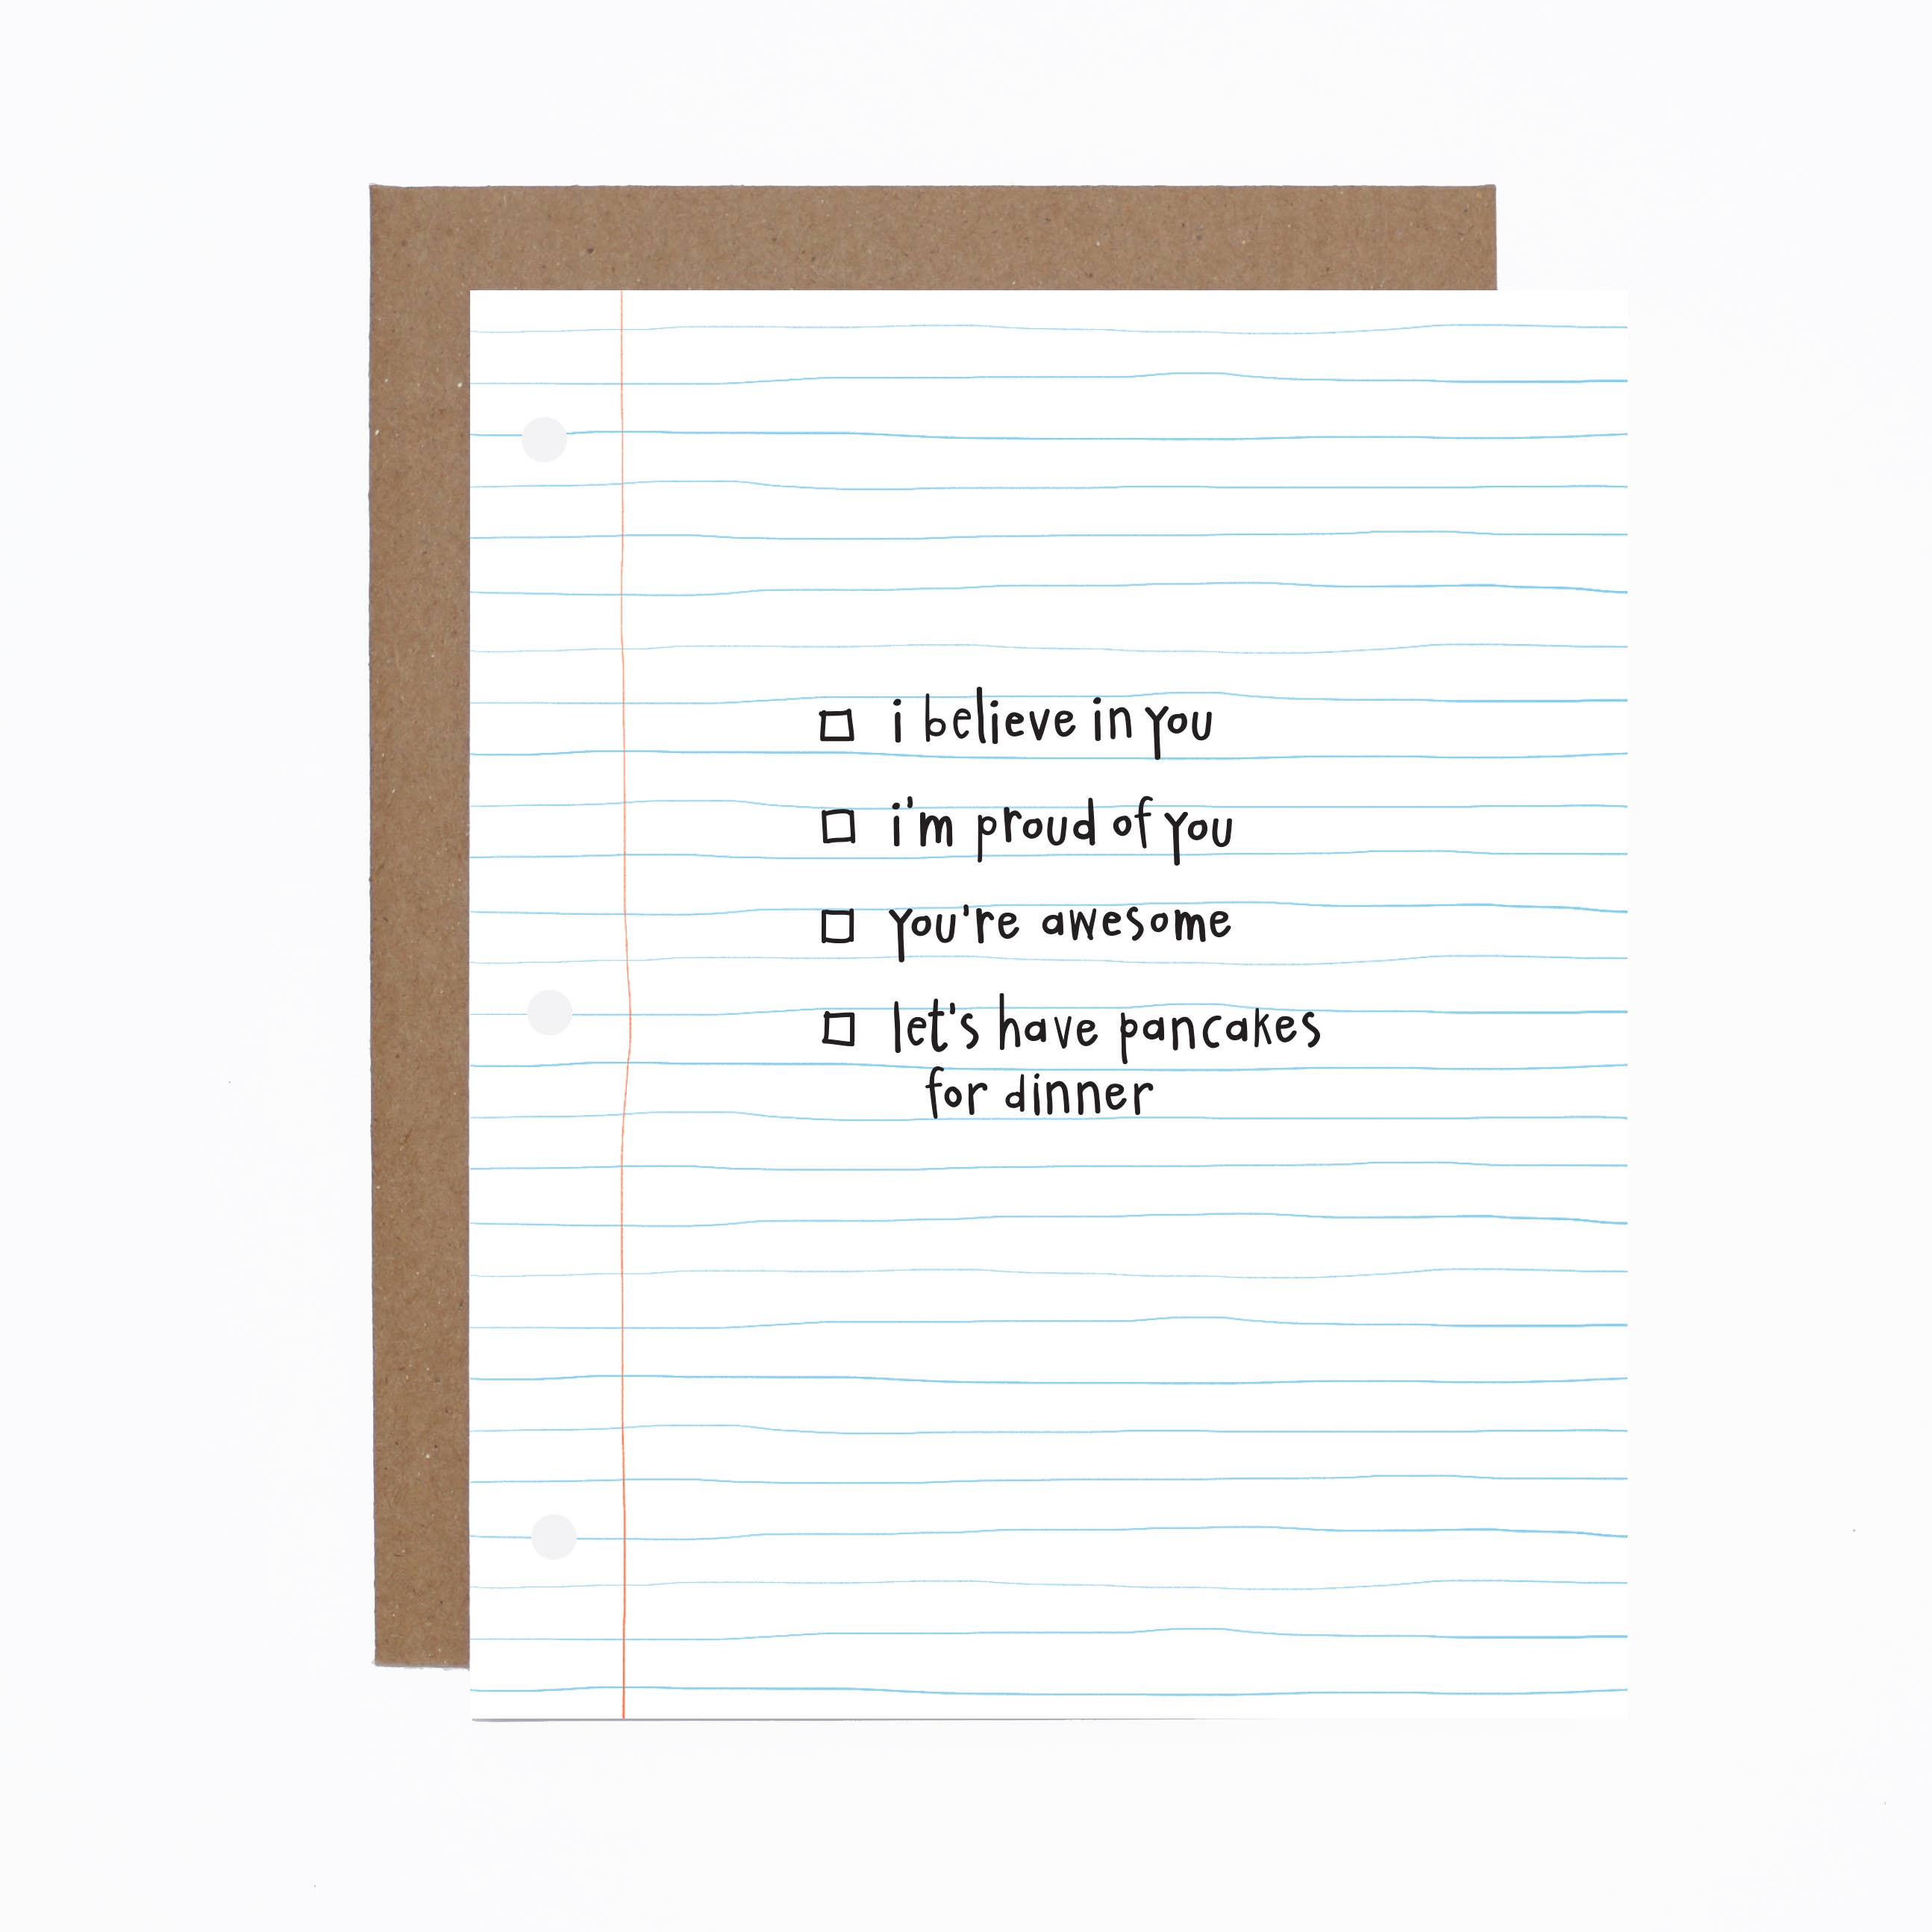 i believe in you
i'm proud of you
you're awesome
let's have pancakes
for dinner